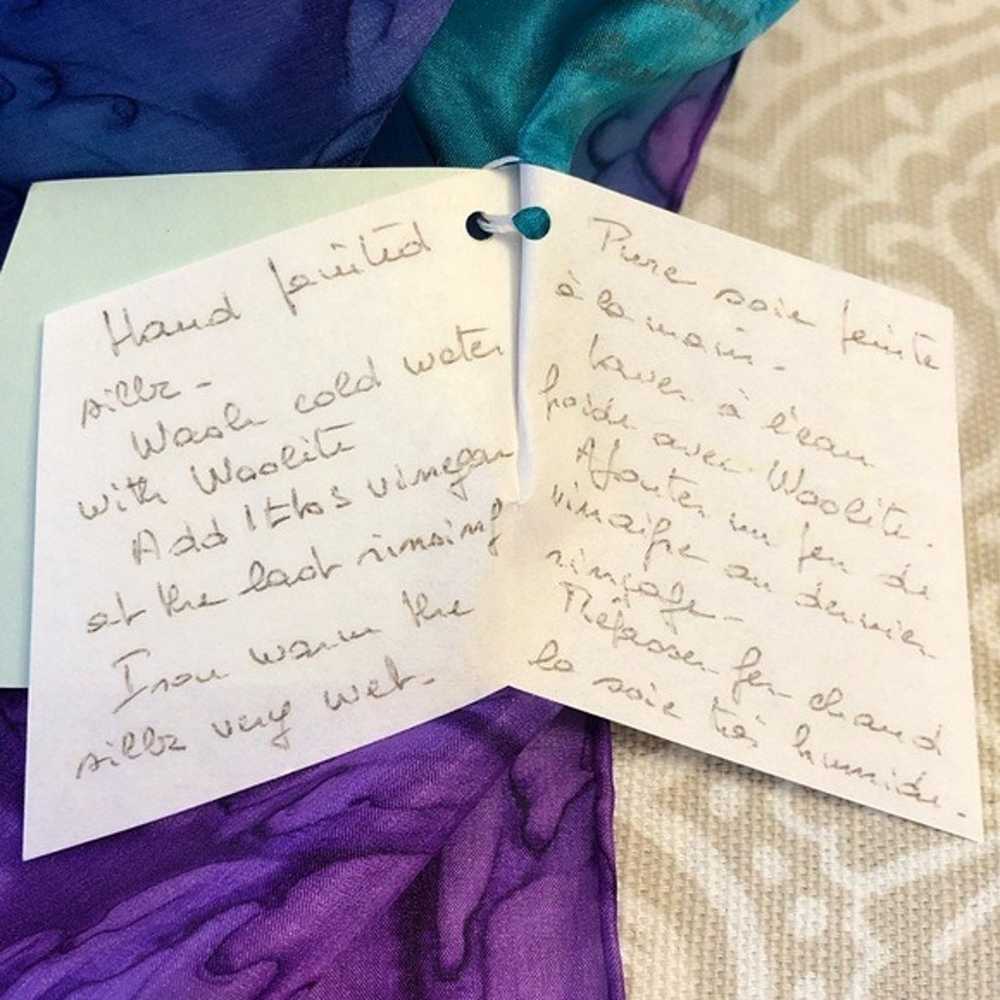 Hand painted
silk -
Wash cold water
with Woolite
Add 1 tbs vinegar
at the last rinsing
Iron warm the
silk very wet.
Pure soie peinte
à la main.
Laver à l'eau
froide avec Woolite.
Ajouter un peu de
vinaigre au dernier
rinçage -
Repasser fer chaud
la soie très humide.